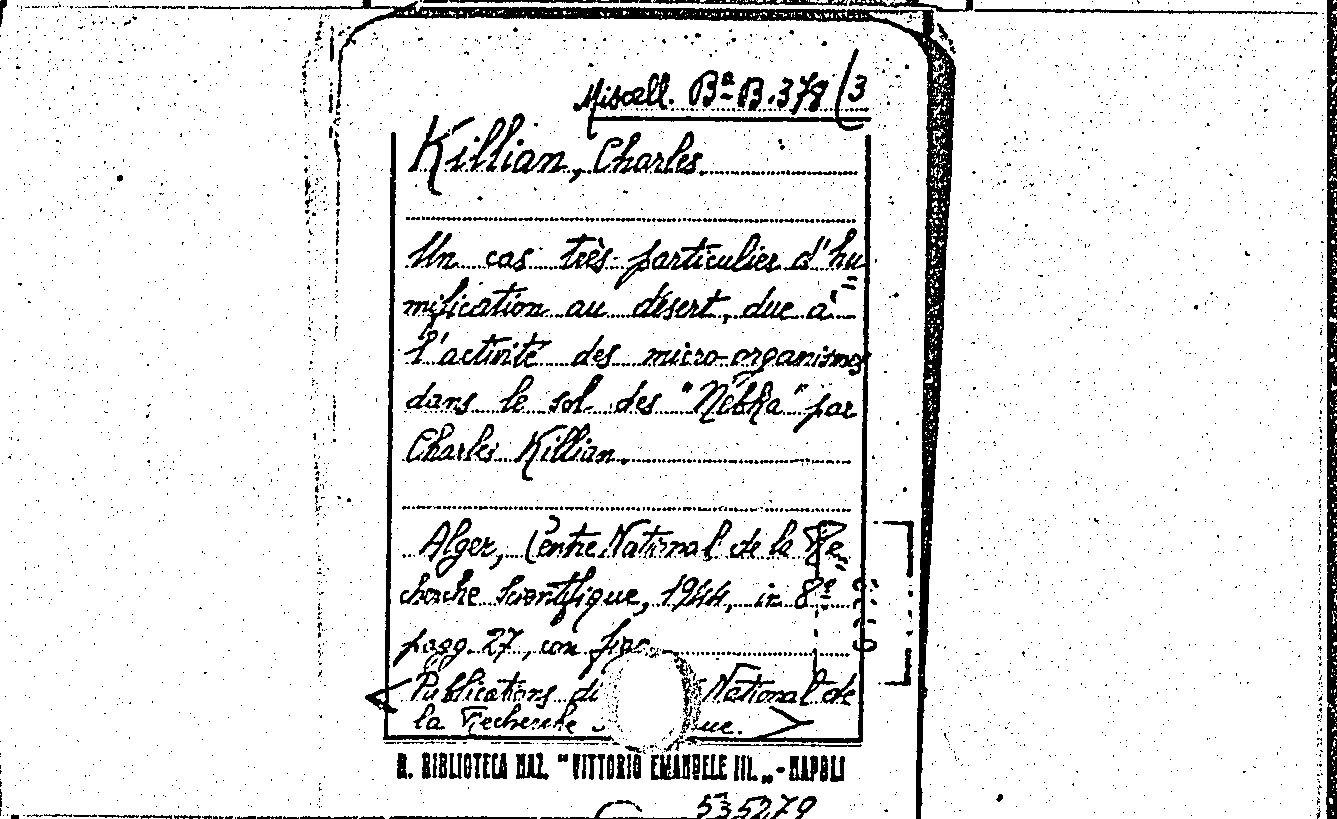 Miscell. Bª B. 378 (3
Killian, Charles
Un cas très particulier d'hu
mification au désert, due à
l'activité des micro-organismes
dans le sol des "Nebka" par
Charles Killian.
Alger, Centre National de la Re„
cherche Scientifique, 1944, in 8º
pagg. 27, con figg.
< Publications du National de
la Recherche que. >
R. BIBLIOTECA NAZ. "VITTORIO EMANUELE III.„ - NAPOLI
535279